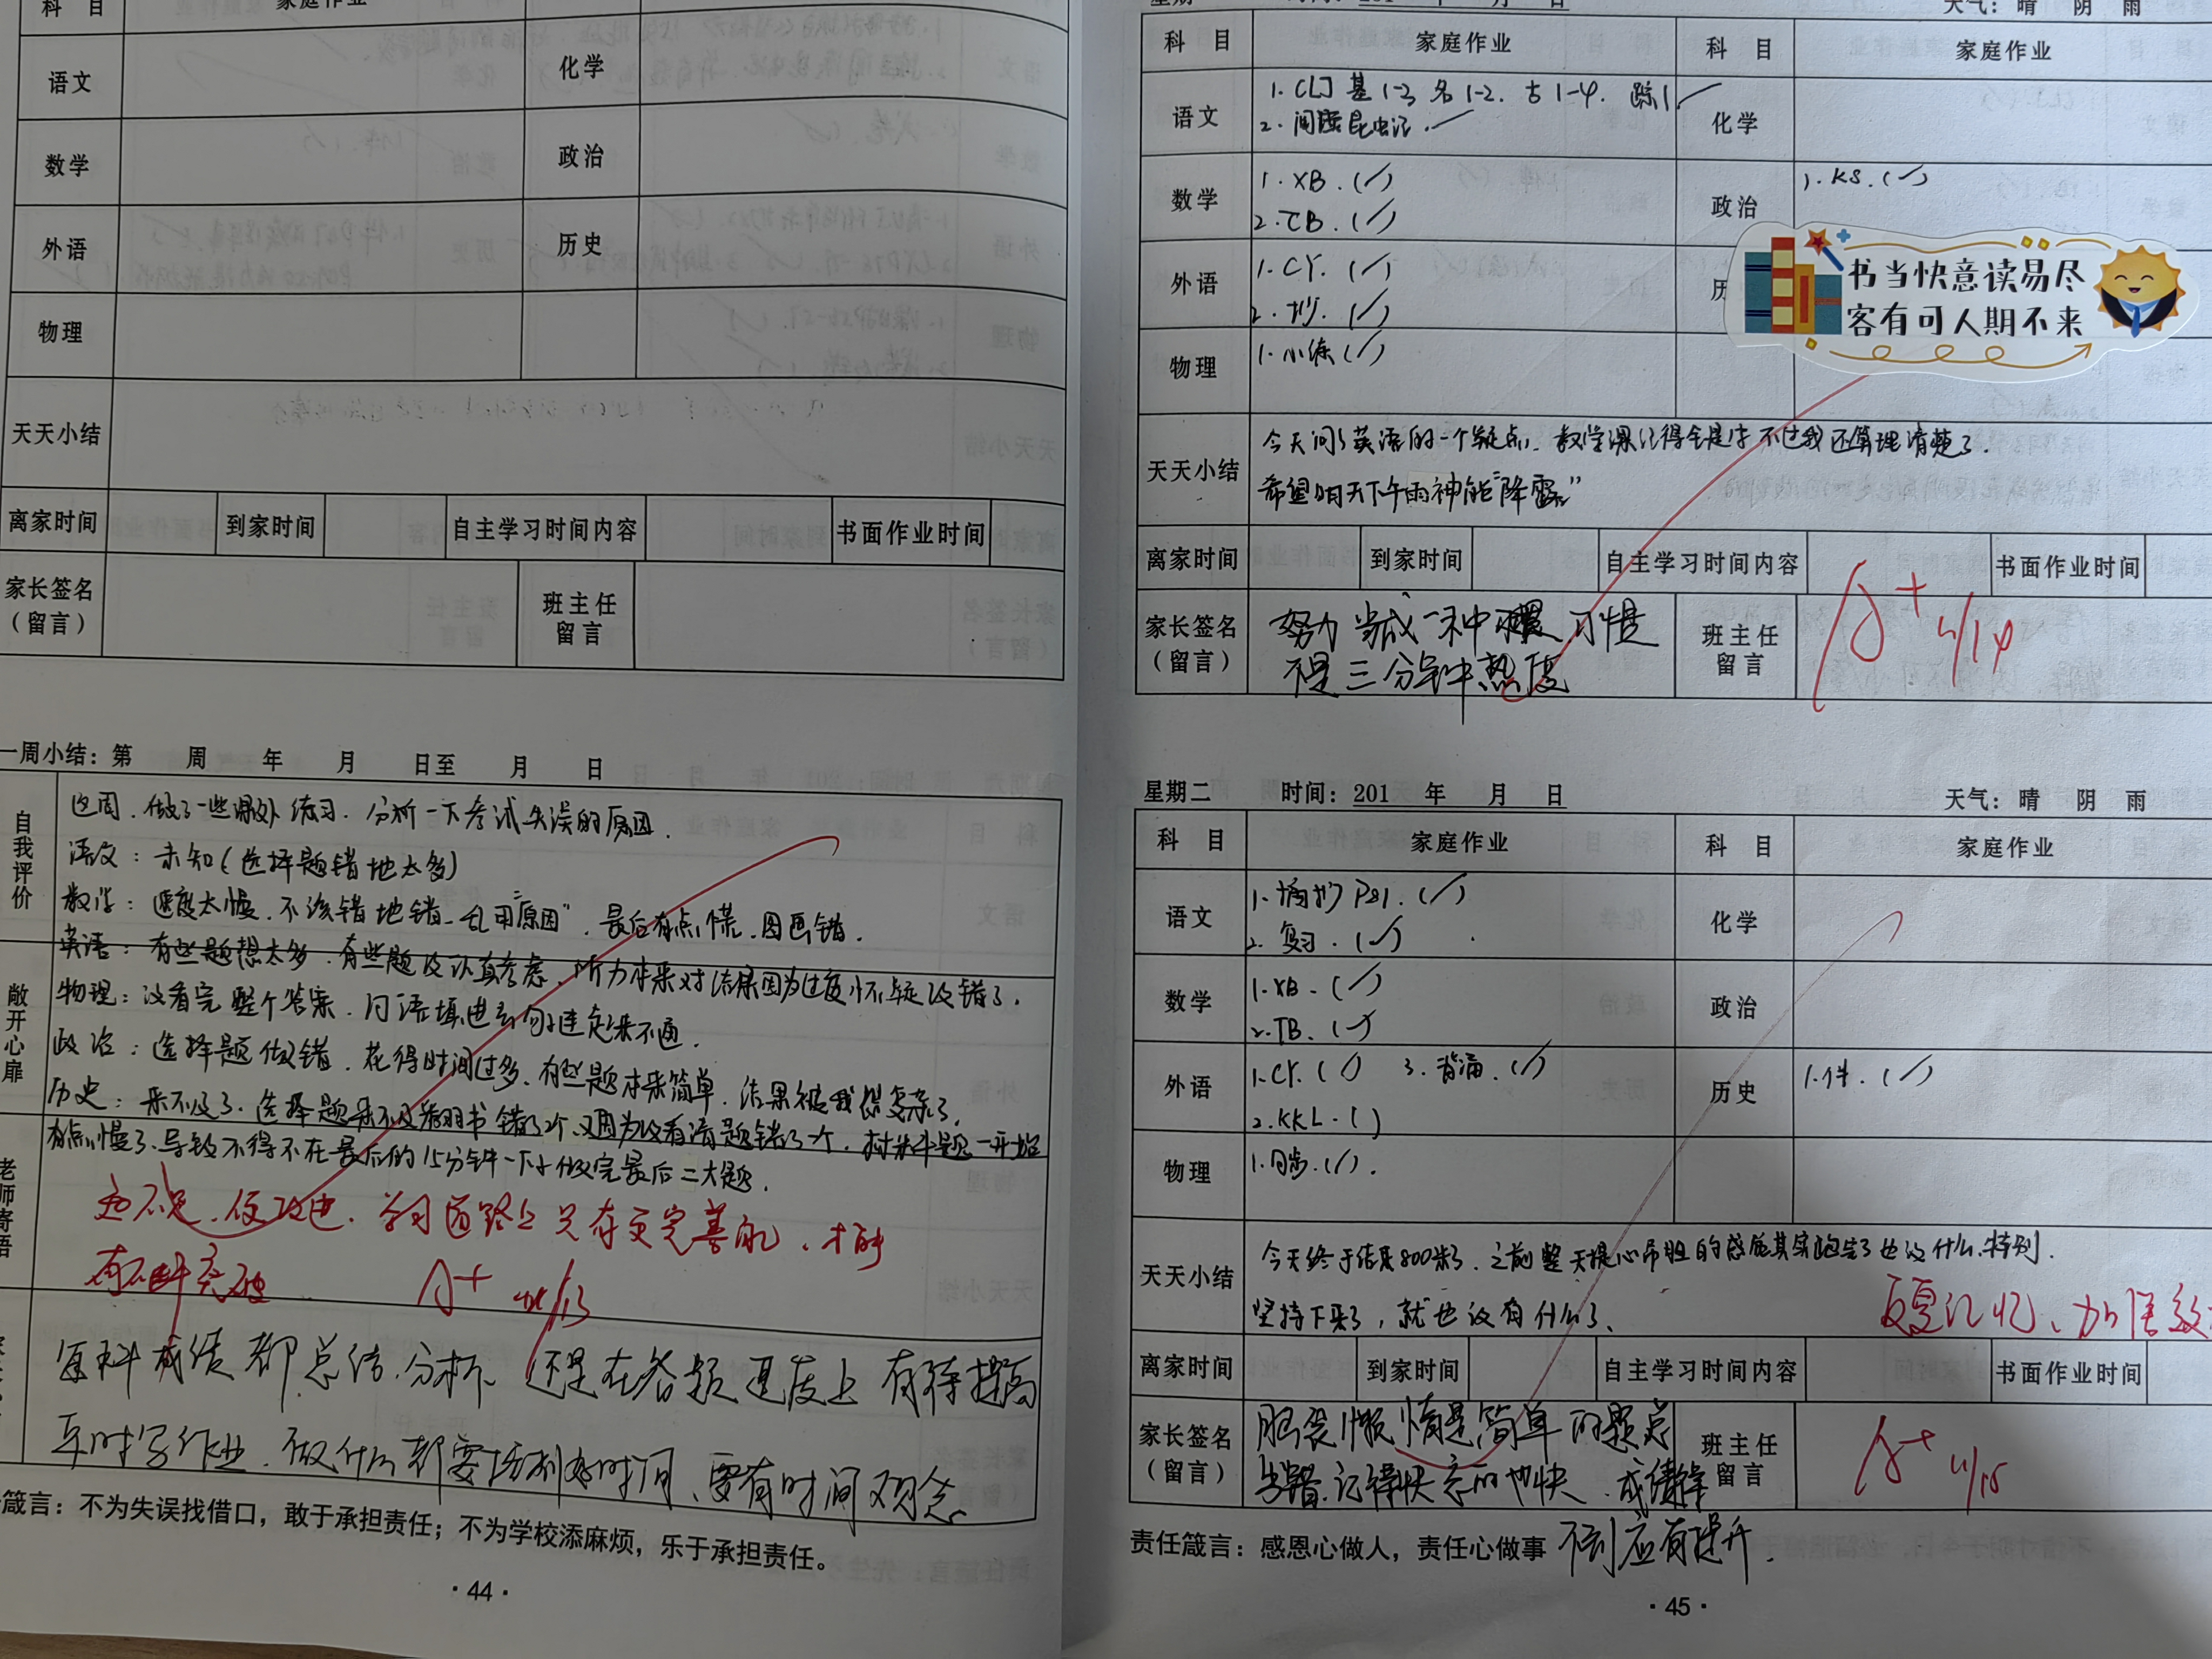 科 目 家庭作业
语文 化学
数学 政治
外语 历史
物理
天天小结
离家时间 到家时间 自主学习时间内容 书面作业时间
家长签名（留言） 班主任留言
一周小结：第 周 年 月 日至 月 日
自我评价
这周，做了一些课外练习．分析一下考试失误的原因．
语文：未知（选择题错地太多）
数学：速度太慢．不该错地错．乱用"原因"．最后有点慌．图画错．
英语：有些题想太多．有些题没认真考虑．听力本来对结果因为过度怀疑改错了．
敞开心扉
物理：没看完整个答案．问语填进去句子连起来不通．
政治：选择题做错．花得时间过多．有些题本来简单．结果被我想复杂了．
历史：来不及了．选择题来不及翻书错了2个．又因为没看清题错了一个．材料题一开始
有点慢了．导致不得不在最后的15分钟一下子做完最后二大题．
老师寄语
知不足．便改进．学习道路上只有更完善的．才能
有不断突破 A+ 4/13
每科成绩都总结．分析 还是在答题速度上有待提高
平时写作业．做什么都要控制好时间、要有时间观念
箴言：不为失误找借口，敢于承担责任；不为学校添麻烦，乐于承担责任。
·44·
天气：晴 阴 雨
科 目 家庭作业 科 目 家庭作业
语文 1. CLJ 基1-3 名1-2. 古1-4. 踪1 化学
2. 阅读昆虫记．
数学 1. XB.(✓) 政治 1. KS.(✓)
2. TB.(✓)
外语 1. CY.(✓)
2. 抄.(✓)
书当快意读易尽
客有可人期不来
物理 1. 小练(✓)
天天小结 今天问了英语的一个疑点．数学课记得全是字不过我还算理清楚了．
希望明天下午雨神能"降露"
离家时间 到家时间 自主学习时间内容 书面作业时间
家长签名（留言） 努力当成一种 习惯 班主任留言 A+ 4/14
不是三分钟热度
星期二 时间：201 年 月 日 天气：晴 阴 雨
科 目 家庭作业 科 目 家庭作业
语文 1. 摘抄P21.(✓) 化学
2. 复习.(✓)
数学 1. XB.(✓) 政治
2. TB.(✓)
外语 1. CY.(/) 3. 背诵.(✓) 历史 1. 件.(✓)
2. KKL.( )
物理 1. 同步.(✓).
天天小结 今天终于结束800米了．之前整天提心吊胆的感觉其实跑完了也没什么特别．
坚持下来了，就也没有什么了、
反复记忆、加倍
离家时间 到家时间 自主学习时间内容 书面作业时间
家长签名（留言） 懒惰是简单的题总 班主任留言 A+ 4/15
当错．记得快忘的也快．成绩
责任箴言：感恩心做人，责任心做事 不到应有提升．
·45·